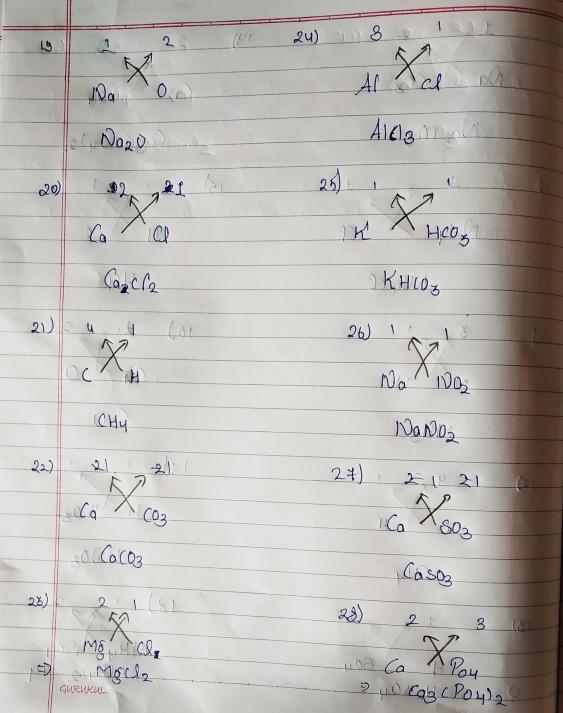 19) 1 2
Na O
Na2O
20) 2 1
Ca Cl
Ca2Cl2
21) 4 1
C H
CH4
22) 21 21
Ca CO3
CaCO3
23) 2 1
Mg Cl
⇒ MgCl2
GURUKUL
24) 3 1
Al Cl
AlCl3
25) 1 1
K HCO3
KHCO3
26) 1 1
Na NO2
NaNO2
27) 2 1 21
Ca SO3
CaSO3
28) 2 3
Ca PO4
⇒ Ca3(PO4)2